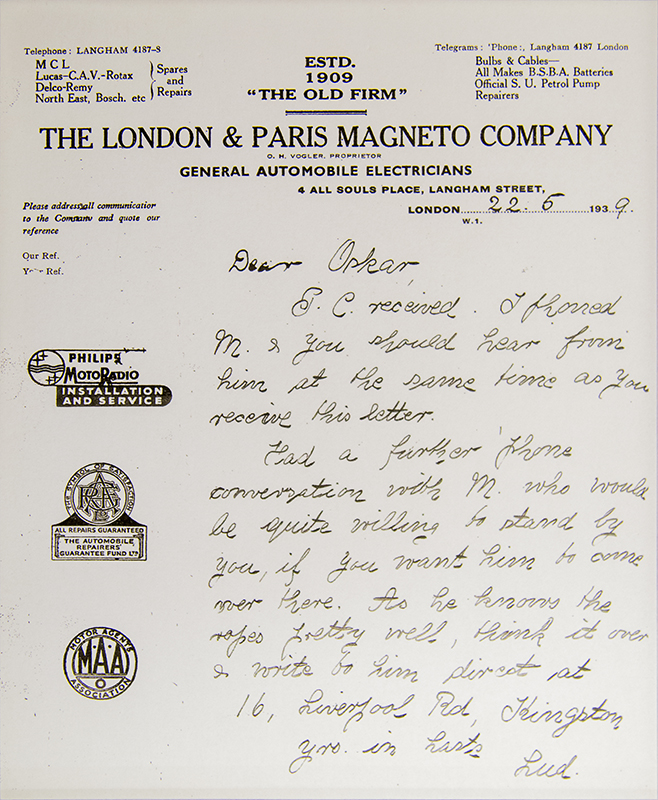 Telephone: LANGHAM 4187-8
M C L
Lucas-C.A.V.-Rotax
Delco-Remy
North East, Bosch. etc
Spares
and
Repairs
ESTD.
1909
"THE OLD FIRM"
Telegrams: 'Phone:, Langham 4187 London
Bulbs & Cables—
All Makes B.S.B.A. Batteries
Official S. U. Petrol Pump
Repairers
THE LONDON & PARIS MAGNETO COMPANY
O. H. VOGLER, PROPRIETOR
GENERAL AUTOMOBILE ELECTRICIANS
4 ALL SOULS PLACE, LANGHAM STREET,
LONDON 22. 6 1939.
W.1.
Please address all communication
to the Company and quote our
reference
Our Ref.
Your Ref.
Dear Oskar,
T. C. received. I phoned
M. & you should hear from
him at the same time as you
receive this letter.
Had a further 'phone
conversation with M. who would
be quite willing to stand by
you, if you want him to come
over there. As he knows the
ropes pretty well, think it over
& write to him direct at
16, Liverpool Rd, Kingston
yrs. in haste
Lud.
PHILIPS
MOTORADIO
INSTALLATION
AND SERVICE
THE SYMBOL OF SATISFACTION
ALL REPAIRS GUARANTEED
THE AUTOMOBILE
REPAIRERS'
GUARANTEE FUND LTD
MOTOR AGENTS
M.A.A
ASSOCIATION